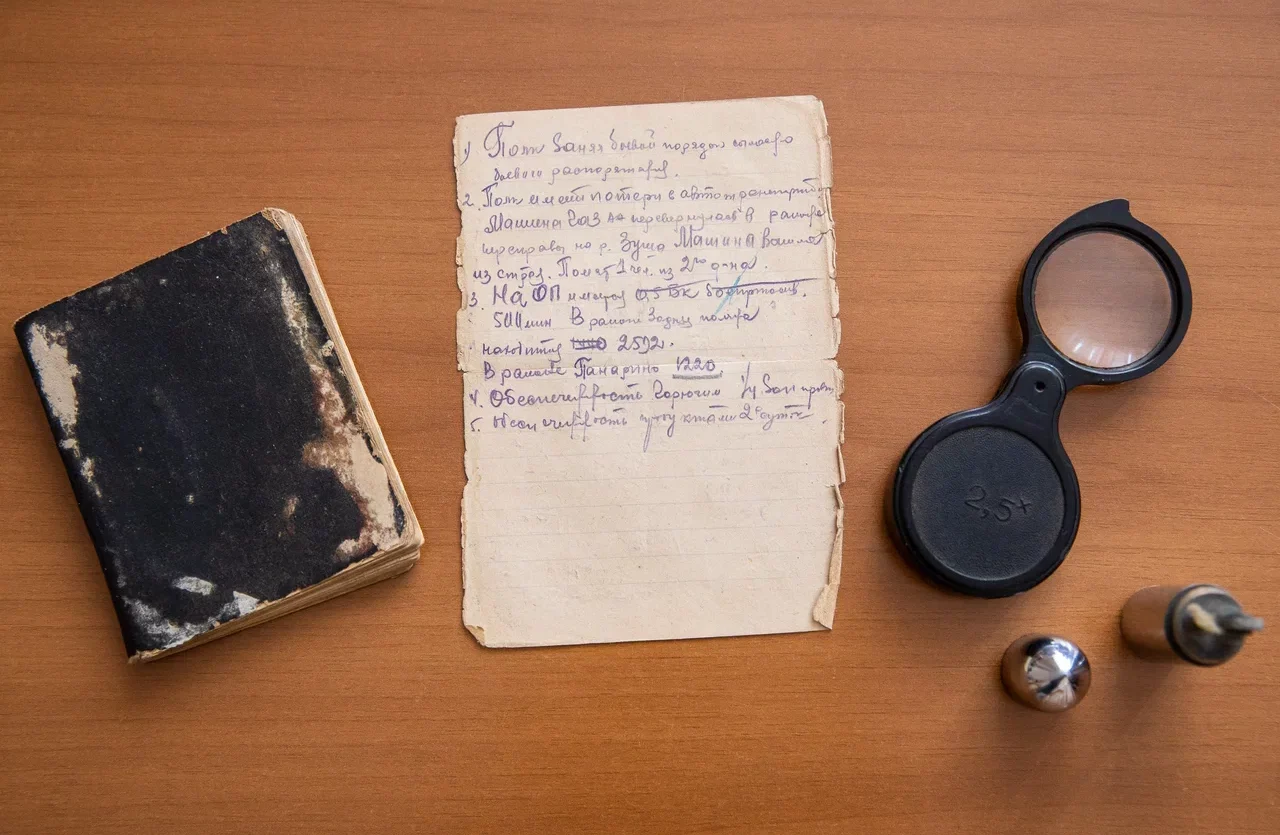 1) Полк занял боевой порядок согласно
боевого распоряжения.
2. Полк имеет потери в автотранспорте
Машина ГАЗ АА перевернулась в районе
переправы на р. Зуша Машина вышла
из строя. 1 чел. из 2го д-на.
3. На ОП имеется 0,5 БК
500 мин В районе Задн
находится 2592.
В районе Панарино 1220
4. Обеспеченность Горючим 1/4
5. Обеспеченность продуктами 2е суток.
2,5×